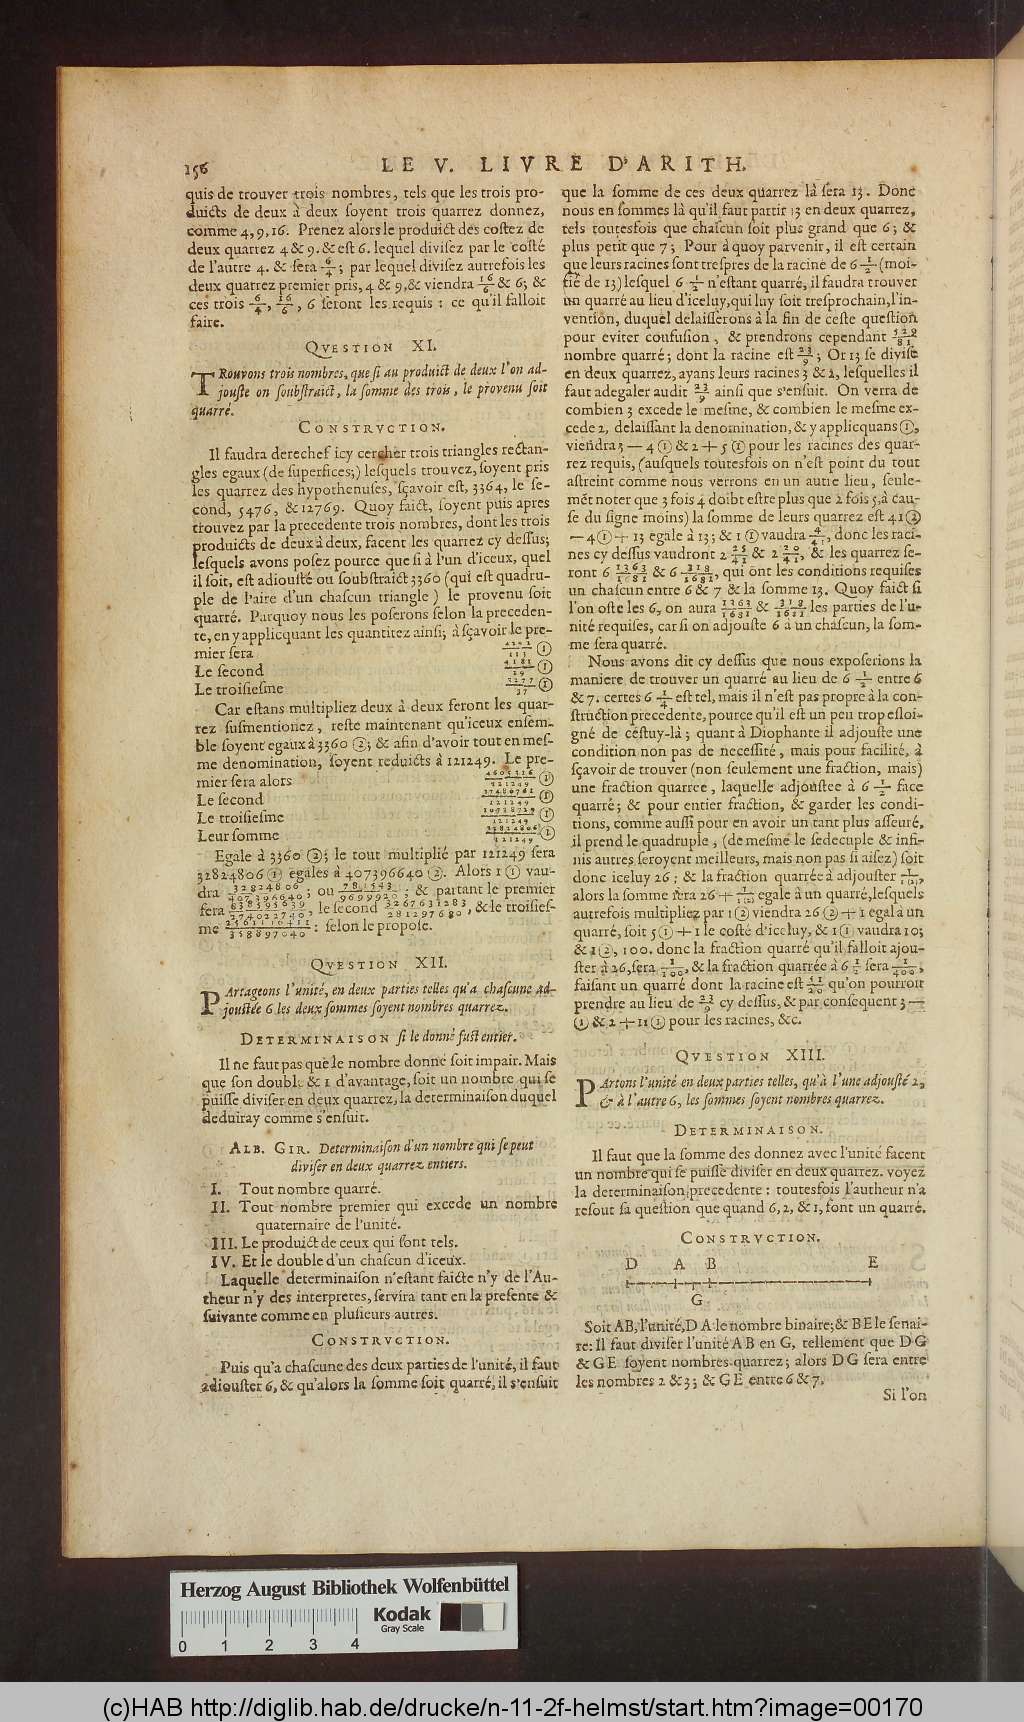 156
LE V. LIVRE D'ARITH.
quis de trouver trois nombres, tels que les trois pro-
duicts de deux à deux soyent trois quarrez donnez,
comme 4, 9, 16. Prenez alors le produict des costez de
deux quarrez 4 & 9. & est 6. lequel divisez par le costé
de l'autre 4. & sera 6/4; par lequel divisez autrefois les
deux quarrez premier pris, 4 & 9, & viendra 16/6 & 6; &
ces trois 6/4, 16/6, 6 seront les requis: ce qu'il falloit
faire.
QVESTION XI.
TRouvons trois nombres, que si au produict de deux l'on ad-
jouste on soubstraict, la somme des trois, le provenu soit
quarré.
CONSTRVCTION.
Il faudra derechef icy cercher trois triangles rectan-
gles egaux (de superfices;) lesquels trouvez, soyent pris
les quarrez des hypothenuses, sçavoir est, 3364, le se-
cond, 5476, & 12769. Quoy faict, soyent puis apres
trouvez par la precedente trois nombres, dont les trois
produicts de deux à deux, facent les quarrez cy dessus;
lesquels avons posez pource que si à l'un d'iceux, quel
il soit, est adiousté ou soubstraict 3360 (qui est quadru-
ple de l'aire d'un chascun triangle) le provenu soit
quarré. Parquoy nous les poserons selon la preceden-
te, en y applicquant les quantitez ainsi; à sçavoir le pre-
mier sera 4292/113 ①
Le second 4181/29 ①
Le troisiesme 3277/37 ①
Car estans multipliez deux à deux feront les quar-
rez susmentionez, reste maintenant qu'iceux ensem-
ble soyent egaux à 3360 ②; & afin d'avoir tout en mes-
me denomination, soyent reduicts à 121249. Le pre-
mier sera alors 4605316/121249 ①
Le second 17480761/121249 ①
Le troisiesme 10738729/121249 ①
Leur somme 32824806/121249 ①
Egale à 3360 ②; le tout multiplié par 121249 sera
32824806 ① egales à 407396640 ②. Alors 1 ① vau-
dra 32824806/407396640; ou 781543/9699920; & partant le premier
sera, le second 3267631283/281297680, & le troisies-
me: selon le propose.
QVESTION XII.
PArtageons l'unité, en deux parties telles qu'a chascune ad-
joustée 6 les deux sommes soyent nombres quarrez.
DETERMINAISON si le donné fust entier.
Il ne faut pas que le nombre donné soit impair. Mais
que son double & 1 d'avantage, soit un nombre qui se
puisse diviser en deux quarrez, la determinaison duquel
deduiray comme s'ensuit.
ALB. GIR. Determinaison d'un nombre qui se peut
diviser en deux quarrez entiers.
I. Tout nombre quarré.
II. Tout nombre premier qui excede un nombre
quaternaire de l'unité.
III. Le produict de ceux qui sont tels.
IV. Et le double d'un chascun d'iceux.
Laquelle determinaison n'estant faicte n'y de l'Au-
theur n'y des interpretes, servira tant en la presente &
suivante comme en plusieurs autres.
CONSTRVCTION.
Puis qu'a chascune des deux parties de l'unité, il faut
adiouster 6, & qu'alors la somme soit quarré, il s'ensuit
que la somme de ces deux quarrez là sera 13. Donc
nous en sommes là qu'il faut partir 13 en deux quarrez,
tels toutesfois que chascun soit plus grand que 6; &
plus petit que 7; Pour à quoy parvenir, il est certain
que leurs racines sont trespres de la racine de 6 1/2 (moi-
tié de 13) lesquel 6 1/2 n'estant quarré, il faudra trouver
un quarré au lieu d'iceluy, qui luy soit tresprochain, l'in-
vention, duquel delaisserons à la fin de ceste question
pour eviter confusion, & prendrons cependant 529/81
nombre quarré; dont la racine est 23/9; Or 13 se divise
en deux quarrez, ayans leurs racines 3 & 2, lesquelles il
faut adegaler audit 23/9 ainsi que s'ensuit. On verra de
combien 3 excede le mesme, & combien le mesme ex-
cede 2, delaissant la denomination, & y applicquans ①,
viendra 3 — 4 ① & 2 + 5 ① pour les racines des quar-
rez requis, (ausquels toutesfois on n'est point du tout
astreint comme nous verrons en un autre lieu, seule-
mēt noter que 3 fois 4 doibt estre plus que 2 fois 5, à cau-
se du signe moins) la somme de leurs quarrez est 41 ②
— 4 ① + 13 egale à 13; & 1 ① vaudra 4/41, donc les raci-
nes cy dessus vaudront 2 25/41 & 2 20/41, & les quarrez se-
ront 6 1363/1681 & 6 318/1681, qui ont les conditions requises
un chascun entre 6 & 7 & la somme 13. Quoy faict si
l'on oste les 6, on aura 1363/1681 & 318/1681 les parties de l'u-
nité requises, car si on adjouste 6 à un chascun, la som-
me sera quarré.
Nous avons dit cy dessus que nous exposerions la
maniere de trouver un quarré au lieu de 6 1/2 entre 6
& 7. certes 6 1/4 est tel, mais il n'est pas propre à la con-
struction precedente, pource qu'il est un peu trop esloi-
gné de cestuy-là; quant à Diophante il adjouste une
condition non pas de necessité, mais pour facilité, à
sçavoir de trouver (non seulement une fraction, mais)
une fraction quarree, laquelle adjoustee à 6 1/2 face
quarré; & pour entier fraction, & garder les condi-
tions, comme aussi pour en avoir un tant plus asseuré,
il prend le quadruple, (de mesme le sedecuple & infi-
nis autres seroyent meilleurs, mais non pas si aisez) soit
donc iceluy 26; & la fraction quarrée à adjouster 1/1②,
alors la somme sera 26 + 1/1② egale à un quarré, lesquels
autrefois multipliez par 1 ② viendra 26 ② + 1 egal à un
quarré, soit 5 ① + 1 le costé d'iceluy, & 1 ① vaudra 10;
& 1 ②, 100. donc la fraction quarré qu'il falloit ajou-
ster à 26, sera 1/100, & la fraction quarrée à 6 1/2 sera 1/400,
faisant un quarré dont la racine est 51/20 qu'on pourroit
prendre au lieu de 23/9 cy dessus, & par consequent 3 —
① & 2 + 11 ① pour les racines, &c.
QVESTION XIII.
PArtons l'unité en deux parties telles, qu'à l'une adjousté 2,
& à l'autre 6, les sommes soyent nombres quarrez.
DETERMINAISON.
Il faut que la somme des donnez avec l'unité facent
un nombre qui se puisse diviser en deux quarrez. voyez
la determinaison precedente: toutesfois l'autheur n'a
resout sa question que quand 6, 2, & 1, font un quarré.
CONSTRVCTION.
D A B E
G
Soit AB, l'unité, DA le nombre binaire; & BE le senai-
re: Il faut diviser l'unité AB en G, tellement que DG
& GE soyent nombres quarrez; alors DG sera entre
les nombres 2 & 3; & GE entre 6 & 7.
Si l'on
Herzog August Bibliothek Wolfenbüttel
Kodak
Gray Scale
0 1 2 3 4
(c)HAB http://diglib.hab.de/drucke/n-11-2f-helmst/start.htm?image=00170